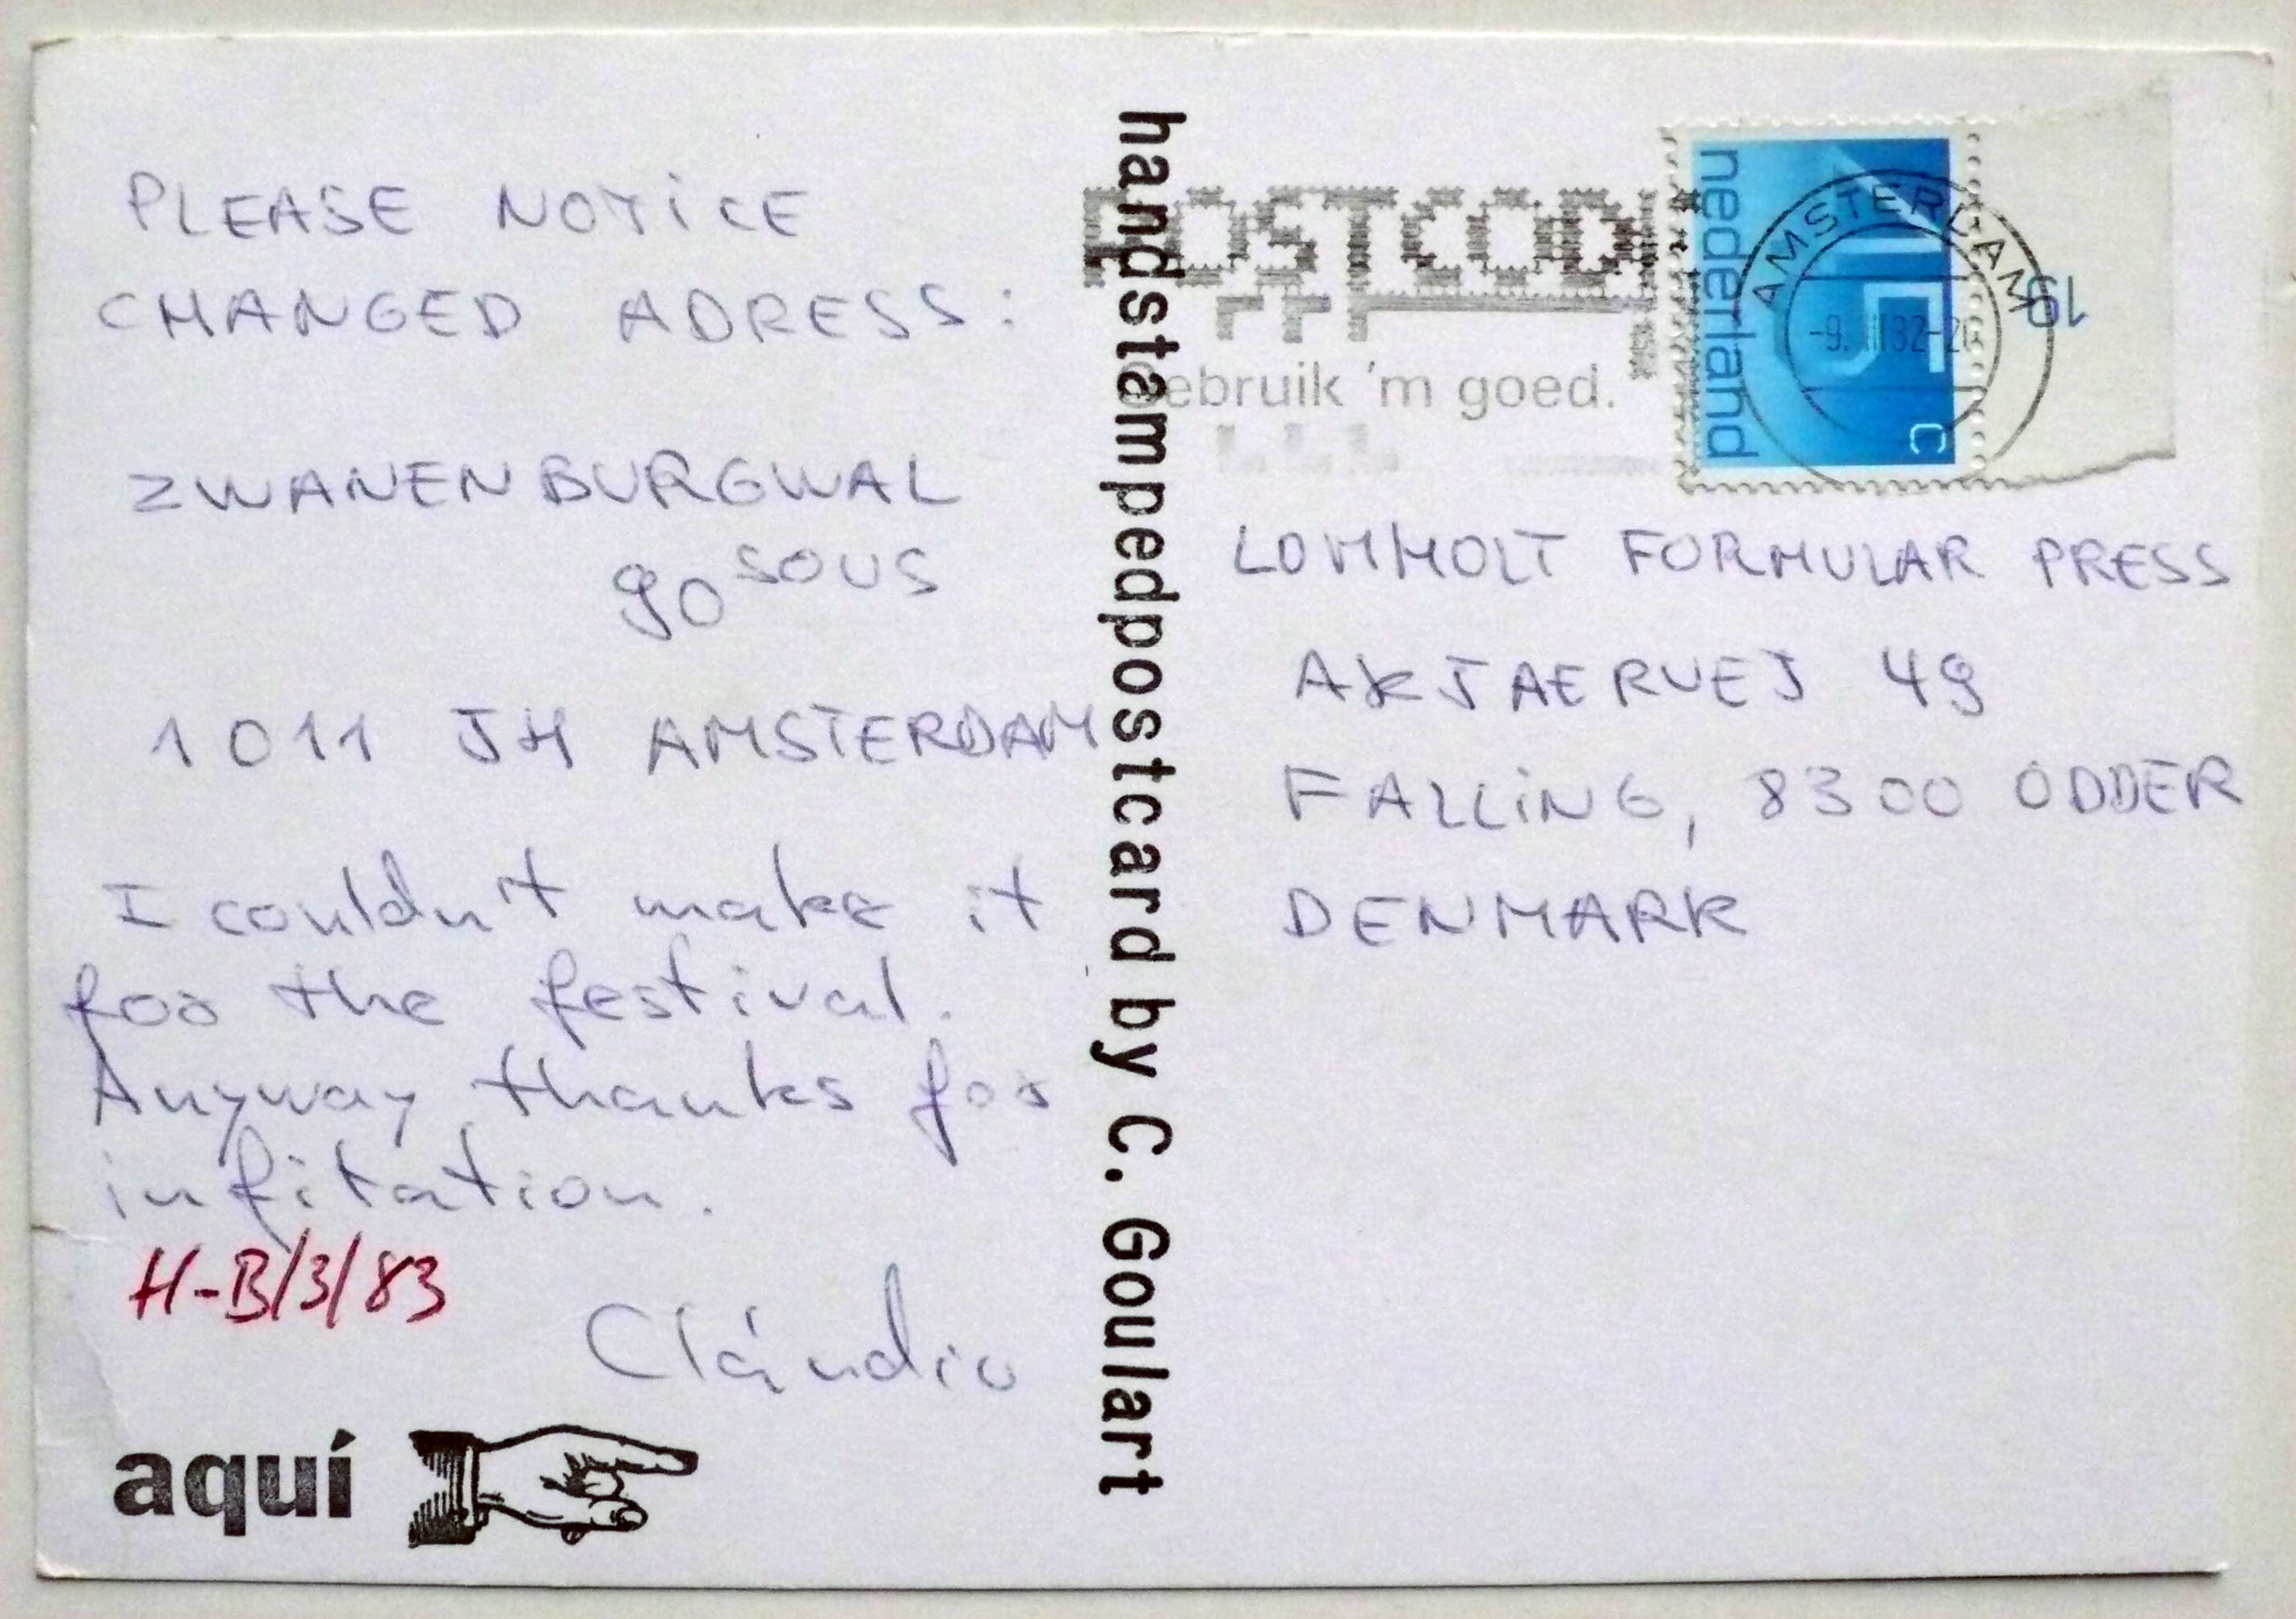 PLEASE NOTICE
CHANGED ADRESS:
ZWANENBURGWAL
90 SOUS
1011 JH AMSTERDAM
I couldn't make it
for the festival.
Anyway thanks for
infitation.
H-B/3/83
Cláudio
aquí
handstampedpostcard by C. Goulart
POSTCODE
gebruik 'm goed.
nederland
45
C
AMSTERDAM
19
LOMHOLT FORMULAR PRESS
AKJAERVEJ 49
FALLiNG, 8300 ODDER
DENMARK